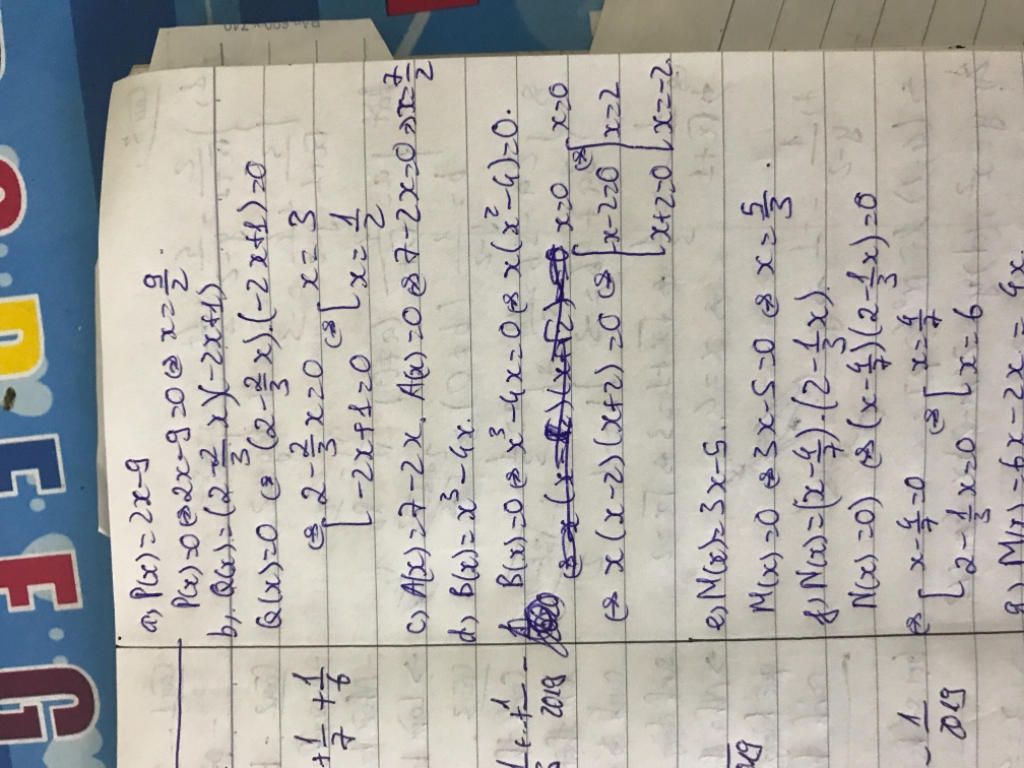 a) P(x) = 2x - 9
P(x) = 0 ⇔ 2x - 9 = 0 ⇔ x = 9/2.
b) Q(x) = (2 - 2/3 x)(-2x + 1)
Q(x) = 0 ⇔ (2 - 2/3 x).(-2x + 1) = 0
⇔ [ 2 - 2/3 x = 0 ⇔ [ x = 3
-2x + 1 = 0 x = 1/2
c) A(x) = 7 - 2x. A(x) = 0 ⇔ 7 - 2x = 0 ⇒ x = 7/2
d) B(x) = x³ - 4x.
B(x) = 0 ⇔ x³ - 4x = 0 ⇔ x(x² - 4) = 0.
⇔ x(x - 2)(x + 2) = 0 ⇔ [ x = 0 ⇔ [ x = 0
x - 2 = 0 x = 2
x + 2 = 0 x = -2
e) M(x) = 3x - 5.
M(x) = 0 ⇔ 3x - 5 = 0 ⇔ x = 5/3.
f) N(x) = (x - 4/7).(2 - 1/3 x).
N(x) = 0) ⇔ (x - 4/7)(2 - 1/3 x) = 0
⇔ [ x - 4/7 = 0 ⇔ [ x = 4/7
2 - 1/3 x = 0 x = 6
g) M(x) = 6x - 2x = 4x.
+ 1/7 + 1/6
2019
1
2019
GFEED